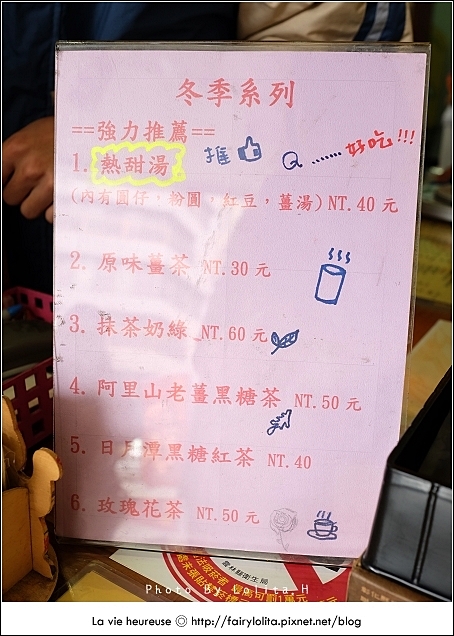 冬季系列
==強力推薦==
1. 熱甜湯 推 Q ...... 好吃!!!
(內有圓仔，粉圓，紅豆，薑湯) NT.40 元
2. 原味薑茶 NT.30 元
3. 抹茶奶綠 NT.60 元
4. 阿里山老薑黑糖茶 NT.50 元
5. 日月潭黑糖紅茶 NT.40
6. 玫瑰花茶 NT.50 元
Photo By Lolita.H
La vie heureuse ◎ http://fairylolita.pixnet.net/blog